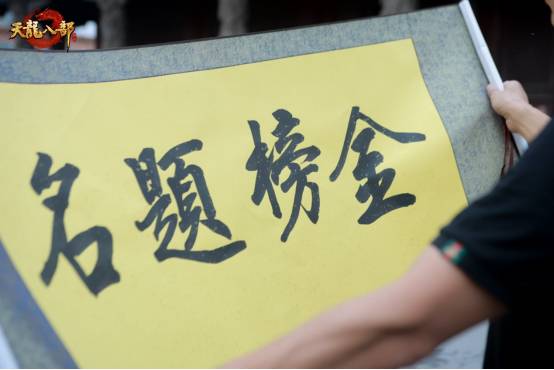 天龍八部
金榜題名